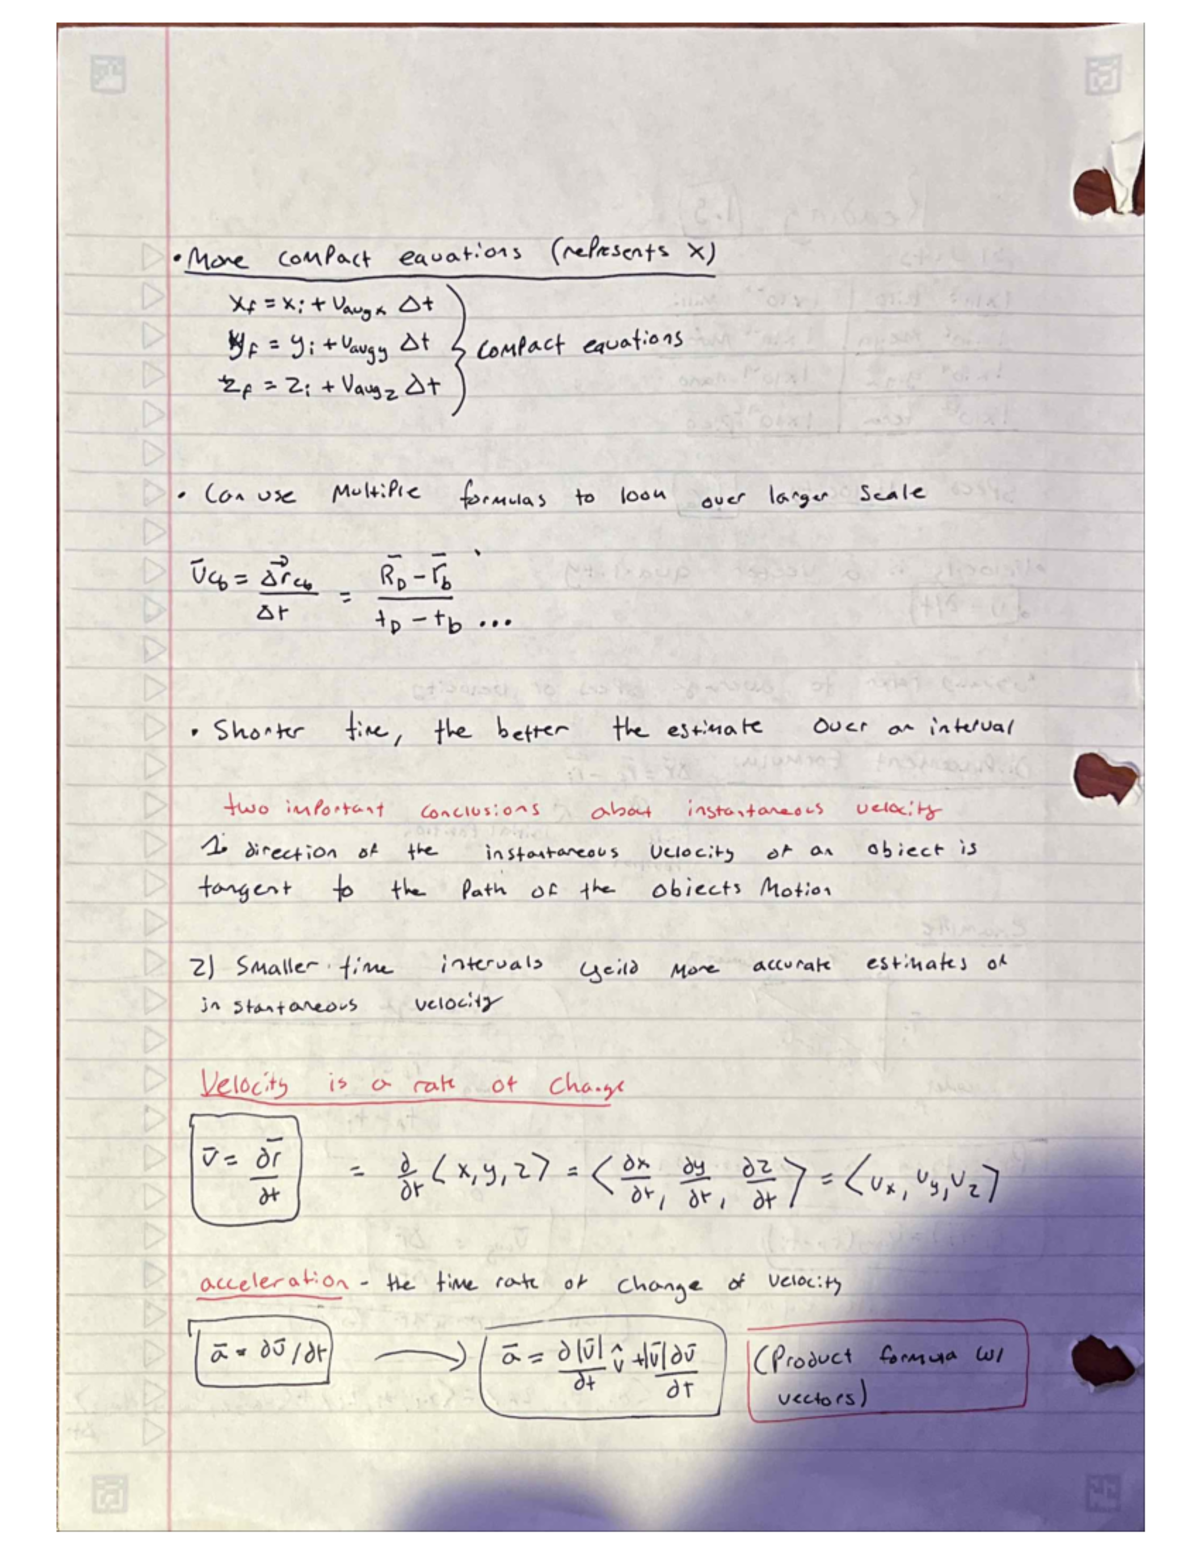 • More compact equations (represents x)
xf = xi + vavgx Δt
yf = yi + vavgy Δt } compact equations
zf = zi + vavgz Δt
• Can use multiple formulas to look over larger scale
v̄cb = Δr⃗cb / Δt = (R̄D − r̄b) / (tD − tb) ...
• Shorter time, the better the estimate over an interval
two important conclusions about instantaneous velocity
1. direction of the instantaneous velocity of an object is
tangent to the path of the objects motion
2) Smaller time intervals yeild more accurate estimates of
instantaneous velocity
Velocity is a rate of change
v̄ = ∂r̄/∂t = ∂/∂t ⟨x, y, z⟩ = ⟨∂x/∂t, ∂y/∂t, ∂z/∂t⟩ = ⟨vx, vy, vz⟩
acceleration - the time rate of change of velocity
ā = ∂v̄/∂t → ā = ∂|v̄|/∂t v̂ + |v̄| ∂v̄/∂t (Product formula w/
vectors)